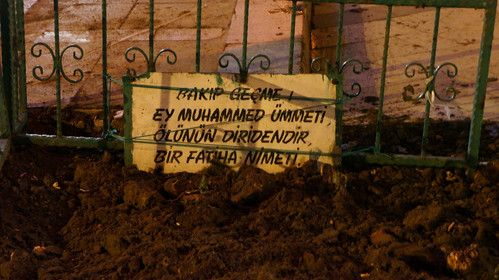 BAKIP GEÇME !
EY MUHAMMED ÜMMETİ
ÖLÜNÜN DİRİDENDİR,
BİR FATİHA NİMETİ.